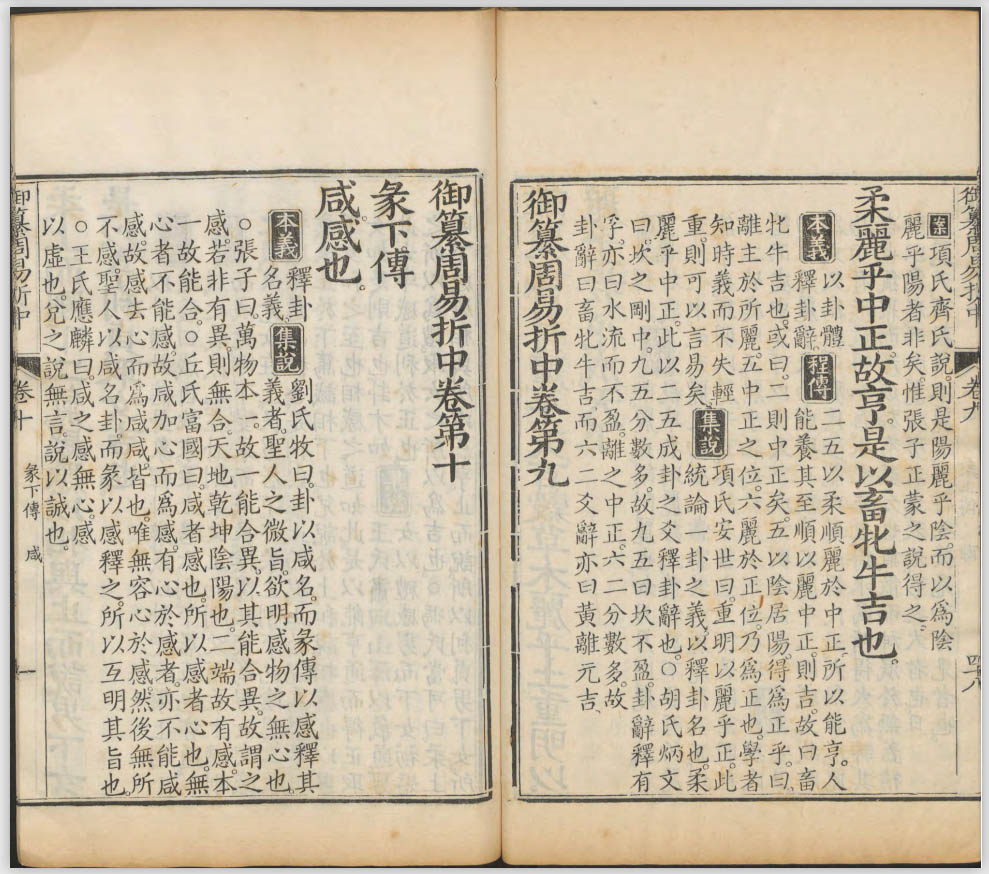 御纂周易折中 卷九 四十八
案項氏齊氏說則是陽麗乎陰而以爲陰
麗乎陽者非矣惟張子正蒙之說得之
柔麗乎中正。故亨。是以畜牝牛吉也。
本義 以卦體釋卦辭。 程傳 二五以柔順麗於中正所以能亨。人
能養其至順以麗中正。則吉。故曰畜
牝牛吉也。或曰二則中正矣。五以陰居陽。得爲正乎。曰
離主於所麗。五中正之位。六麗於正位。乃爲正也。學者
知時義而不失輕
重。則可以言易矣。 集說 項氏安世曰。重明以麗乎正。此
統論一卦之義以釋卦名也。柔
麗乎中正。此以二五成卦之爻釋卦辭也。○胡氏炳文
曰。坎之剛中。九五分數多。故九五曰坎不盈。卦辭釋有
孚。亦曰水流而不盈。離之中正。六二分數多。故
卦辭曰畜牝牛吉。而六二爻辭亦曰黃離元吉、
御纂周易折中卷第九
御纂周易折中卷第十
彖下傳
咸。感也。
本義 釋卦名義。 集說 劉氏牧曰。卦以咸名。而彖傳以感釋其
義者。聖人之微旨。欲明感物之無心也。
○張子曰。萬物本一。故一能合異。以其能合異。故謂之
感。若非有異。則無合。天地乾坤陰陽也。二端故有感。本
一故能合。○丘氏富國曰。咸者感也。所以感者心也。無
心者不能感。故咸加心而爲感。有心於感者。亦不能咸
感。故感去心而爲咸。咸皆也。唯無容心於感。然後無所
不感。聖人以咸名卦。而彖以感釋之。所以互明其旨也。
○王氏應麟曰。咸之感無心。感
以虛也。兌之說無言。說以誠也。
御纂周易折中 卷十 彖下傳 咸 一